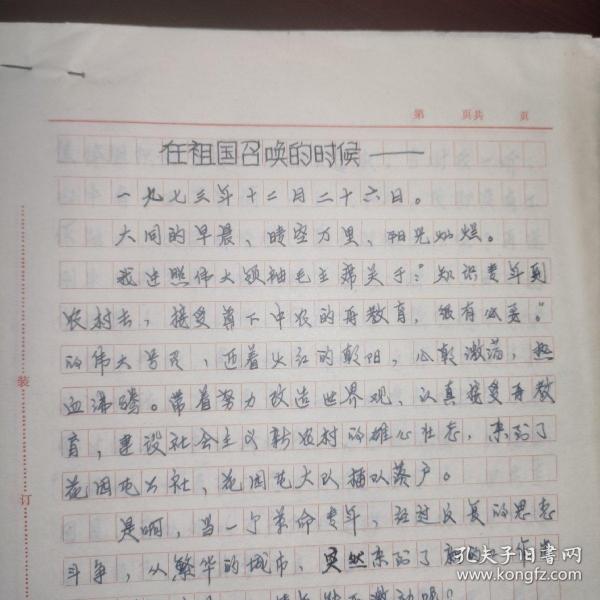 第 页共 页
在祖国召唤的时候——
一九七三年十二月二十六日。
大同的早晨、晴空万里、阳光灿烂。
我遵照伟大领袖毛主席关于："知识青年到
农村去，接受贫下中农的再教育，很有必要。"
的伟大号召，迎着火红的朝阳，心朝激荡，热
血沸腾。带着努力改造世界观、认真接受再教
育，建设社会主义新农村的雄心壮志，来到了
花园屯公社，花园屯大队插队落户。
是啊，当一个革命青年，经过反复的思想
斗争，从繁华的城市，突然来到了
激动
装
订
孔夫子旧书网
www.kongfz.com